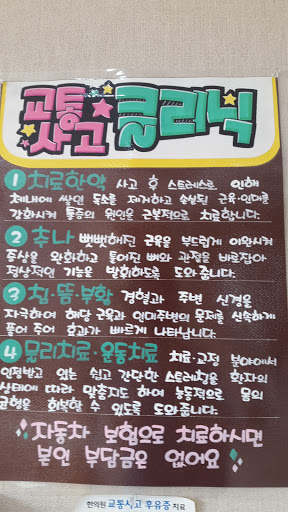 교통
사고
클리닉
1 치료한약 사고 후 스트레스로 인해
체내에 쌓인 독소를 제거하고 손실된 근육·인대를
강화시켜 통증의 원인을 근본적으로 치료합니다.
2 추나 뻣뻣해진 근육을 부드럽게 이완시켜
증상을 완화하고 틀어진 뼈와 관절을 바로잡아
정상적인 기능을 발휘하도록 도와줍니다.
3 침·뜸·부항 경혈과 주변 신경을
자극하여 해당 근육과 인대주변의 문제를 신속하게
풀어 주어 효과가 빠르게 나타납니다.
4 물리치료·운동치료 치료·교정 분야에서
인정받고 있는 쉽고 간단한 스트레칭을 환자의
상태에 따라 맞춤지도 하여 능동적으로 몸의
균형을 회복할 수 있도록 도와줍니다.
자동차 보험으로 치료하시면
본인 부담금은 없어요
한의원 교통사고 후유증 치료